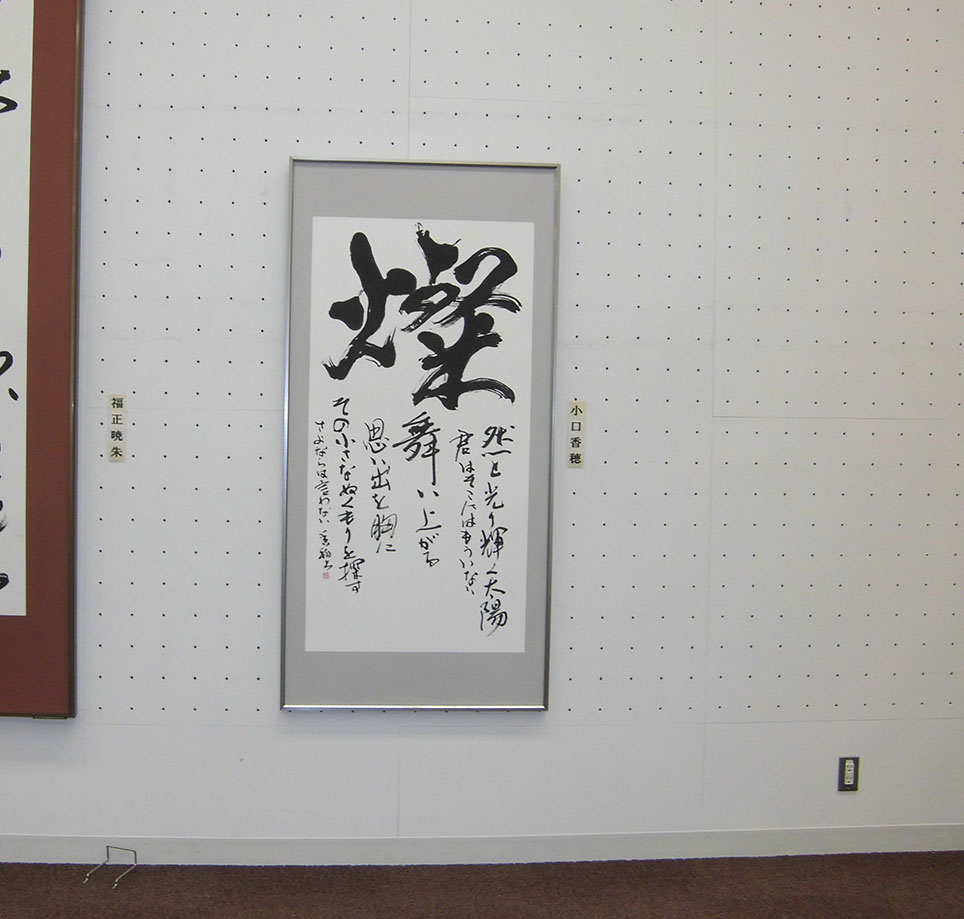 燦
然と光り輝く太陽
君はそこにはもういない
舞い上がる
思い出を胸に
その小さなぬくもりを探す
さよならは言わない 香穂書
小口香穂
福正暁朱